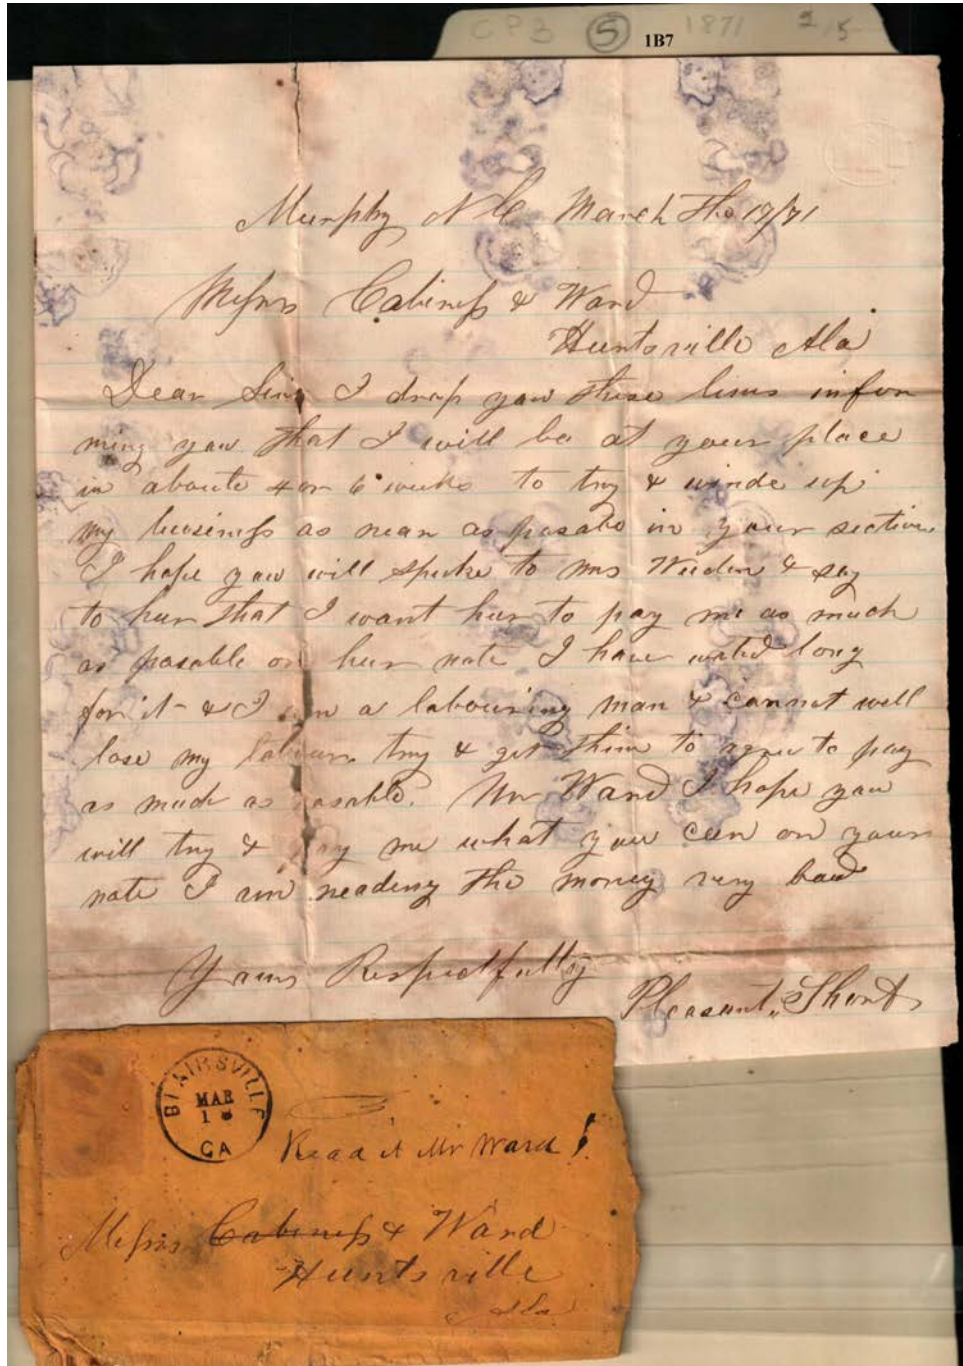 CPB 5 1871 2/5
1B7
Murphy N C March the 17/71
Messrs Cabiness & Ward
Huntsville Ala
Dear Sirs I drop yau these lines infor
ming yau that I will be at your place
in aboute 4 or 6 weeks to try & winde up
my business as near as posable in your section
I hope yau will speke to mrs Weeden & say
to her that I want her to pay me as much
as posable on her note I have wated long
for it & I am a labouring man & cannot well
lose my labour try & get them to agree to pay
as much as posable. Mr Ward I hope yau
will try & pay me what you can on your
note I am neading the money very bad
Yours Respectfully
Pleasant Short
BLAIRSVILLE
MAR
GA
Read it Mr Ward!
Messrs Cabiness & Ward
Huntsville
Ala